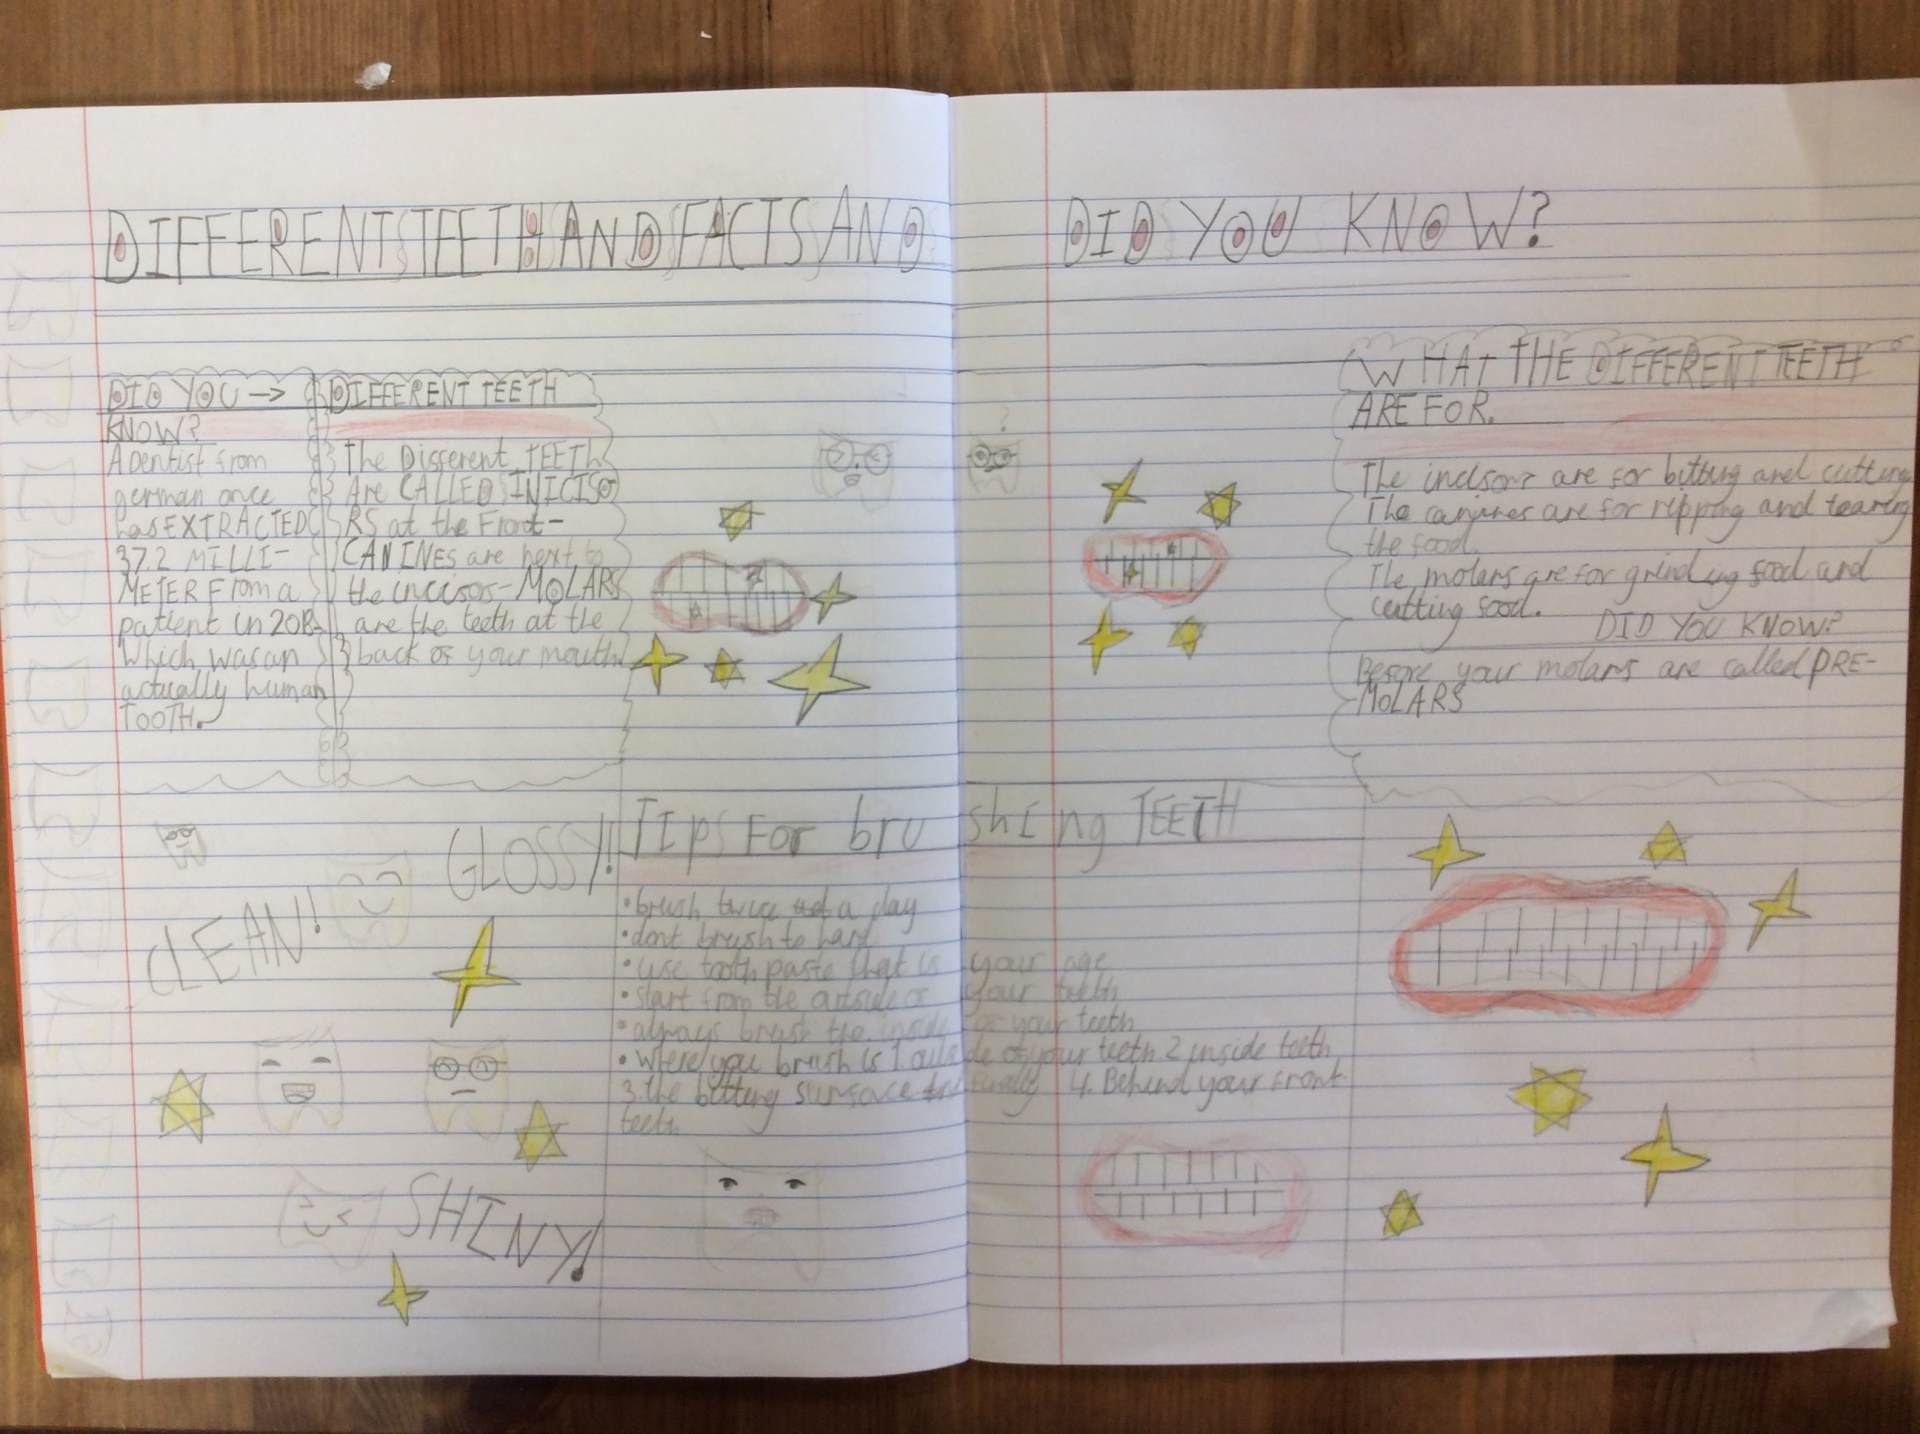 DIFFERENT TEETH AND FACTS AND DID YOU KNOW?
DID YOU →
KNOW?
A Dentist from
german once
has EXTRACTED
37.2 MILLI-
METER From a
patient in 2018
Which was an
actually human
TOOTH.
DIFFERENT TEETH
The Different TEETH
Are CALLED INICISO
RS at the Front-
CANINES are next to
the incisors- MOLARS
are the teeth at the
back of your mouth
WHAT THE DIFFERENT TEETH
ARE FOR.
The incisors are for bitting and cutting
The canines are for ripping and tearing
the food.
The molars are for grinding food and
cutting food.
DID YOU KNOW?
Before your molars are called PRE-
MOLARS
?
GLOSSY!
CLEAN!
SHINY!
TIPS FOr brushing TEETH
• brush twice a day
• dont brush to hard
• use tooth paste that is your age
• start from the outside of your teeth
• always brush the inside of your teeth
• where you brush is 1. outside of your teeth 2 inside teeth
3. the bitting surface finally 4. Behind your front
teeth